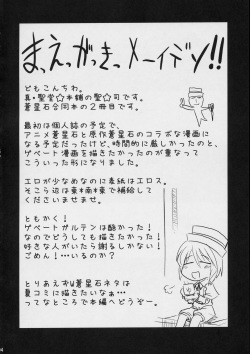 まえがきっメーイデソ!!
どもこんちわ。
真・聖堂☆本舗の聖☆司です。
蒼星石合同本の2冊目です。
最初は個人誌の予定で、
アニメ蒼星石と原作蒼星石のコラボな漫画に
なる予定だったけど、時間的に厳しかったのと、
ゲベート漫画を描きたかったのが重なって
こういった形になりました。
エロが少なめなのに表紙はエロス。
そこら辺は東*南*東で補給して
くださいませませ。
ともかく!
ゲベートガルテンは酷かった!
でもどうしても描きたかった!
好きな人がいたら謝るしかない!
ごめん!…いるのか?
とりあえずは蒼星石ネタは
夏コミに描きたいなぁ…
ってなところで本編へどうぞー。